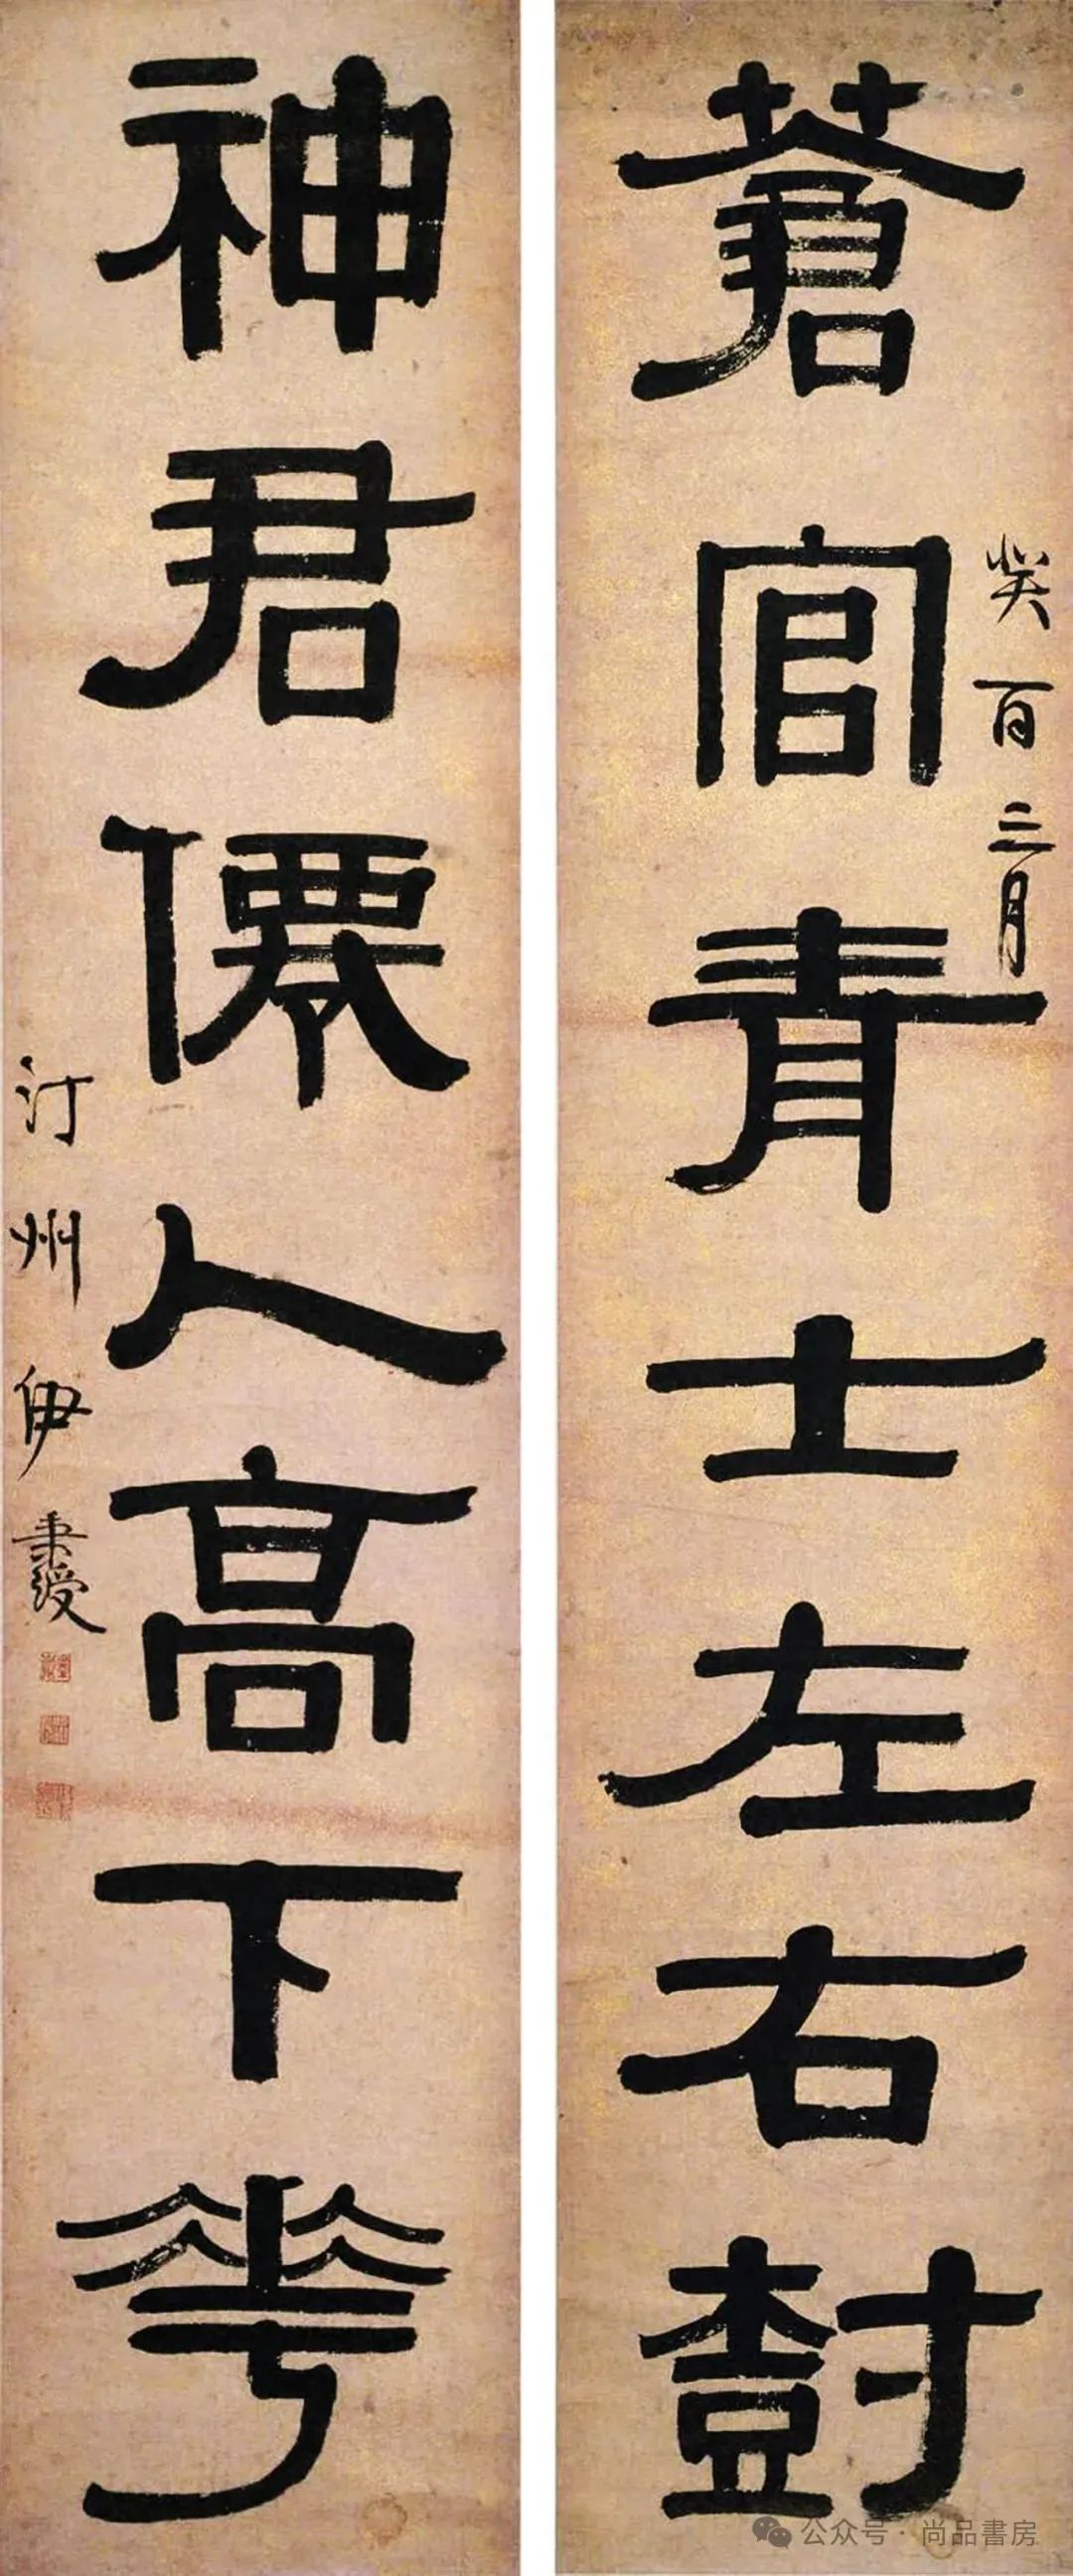 蒼官青士左右尌
癸酉三月
神君僊人高下華
汀州伊秉綬
公众号 · 尚品書房